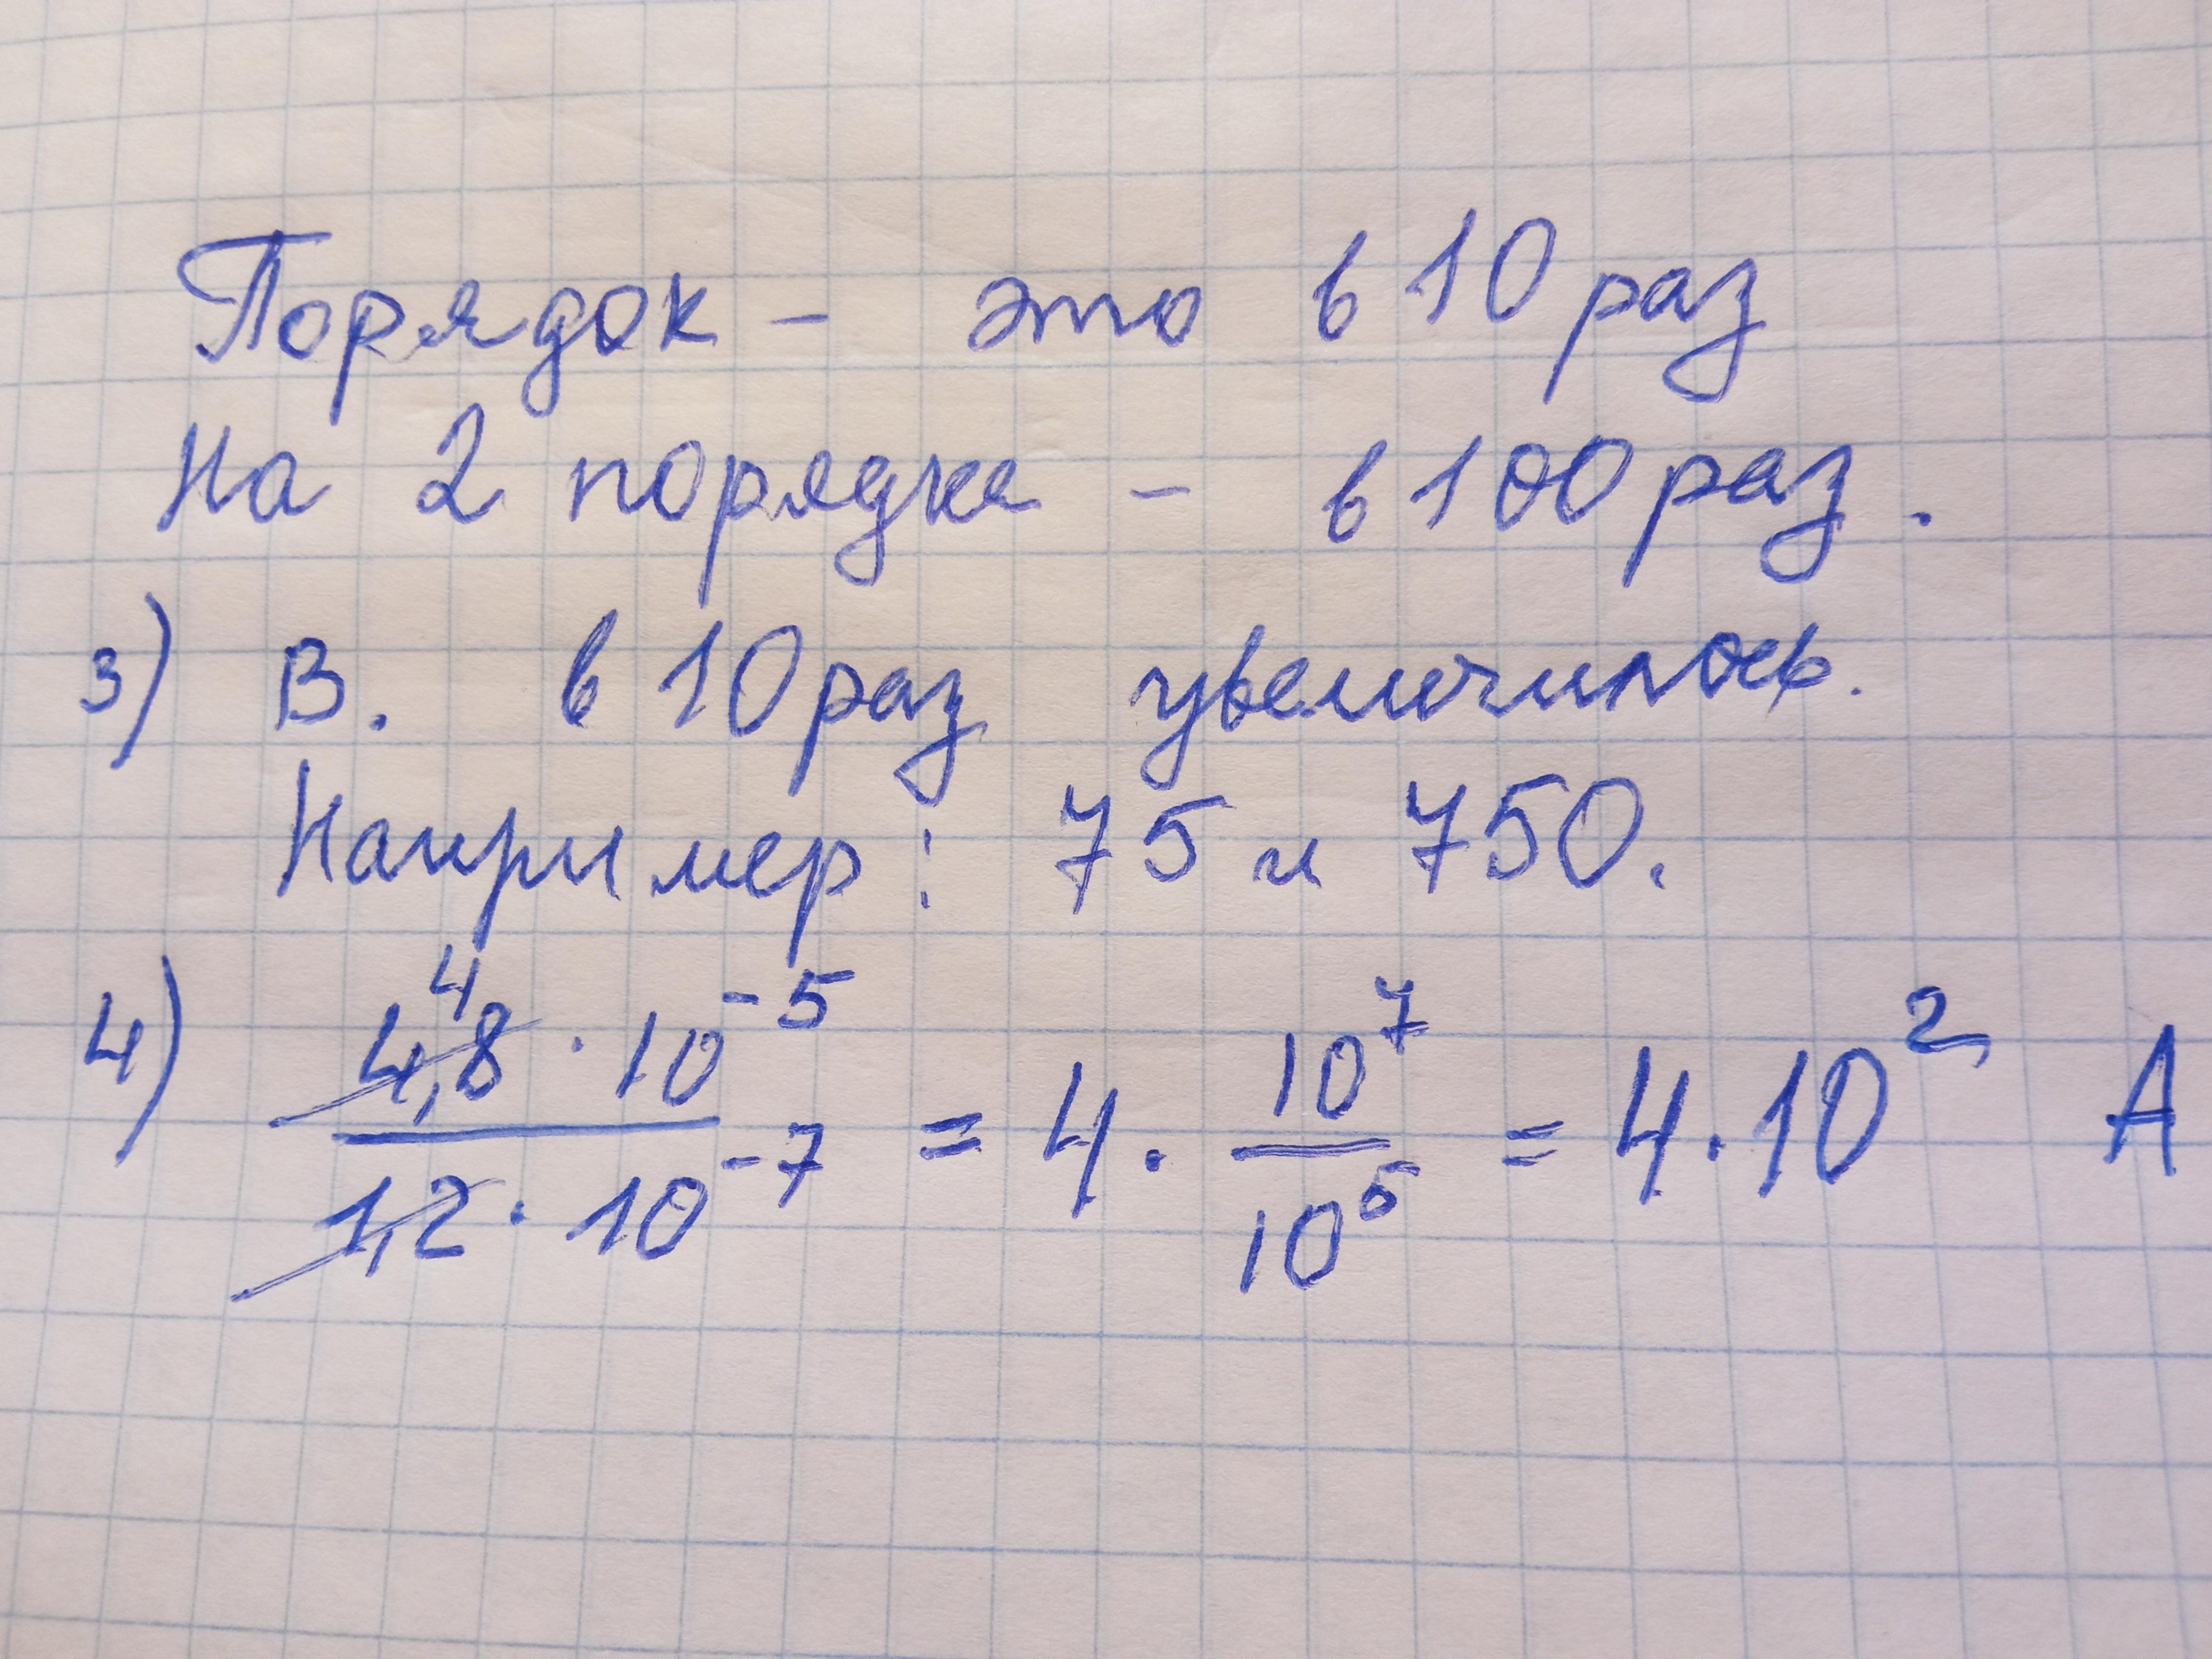 Порядок - это в 10 раз
На 2 порядка - в 100 раз.
3) В. в 10 раз увеличилось.
Например: 75 и 750.
4) 4,8 4 · 10^-5 / 1,2 · 10^-7 = 4 · 10^7 / 10^5 = 4 · 10^2 А